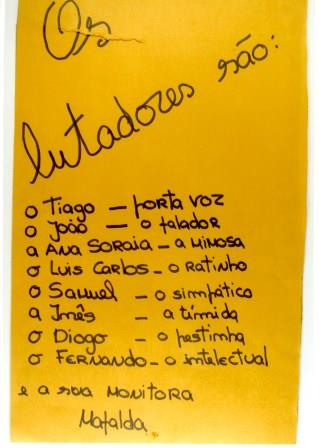 Os
lutadores são:
o Tiago – porta voz
o João – o falador
a Ana Soraia – a mimosa
o Luis Carlos – o Ratinho
o Samuel – o simpático
a Inês – a tímida
o Diogo – o pestinha
o Fernando – o intelectual
e a sua monitora
Mafalda.